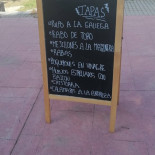 TAPAS
PULPO A LA GALLEGA
RABO DE TORO
MEJILLONES A LA MARINERA
RABAS
BOQUERONES EN VINAGRE
HUEVOS ESTRELLADOS CON
JAMON
CALAMARES A LA